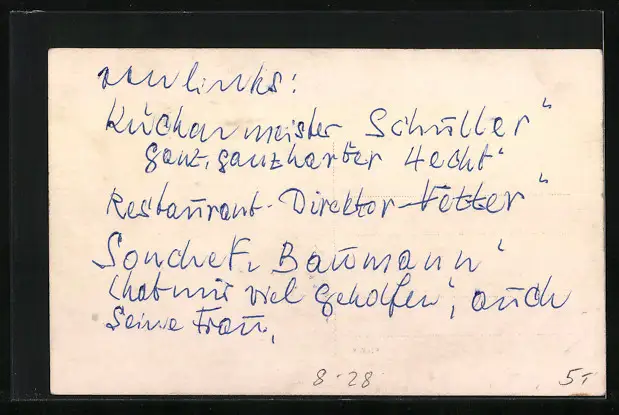 von links:
Küchenmeister Schüller"
ganz, ganz harter Hecht"
Restaurant-Direktor-Vetter"
Baumann"
(hat mir viel geholfen", auch
seine Frau,
8.28
5,-